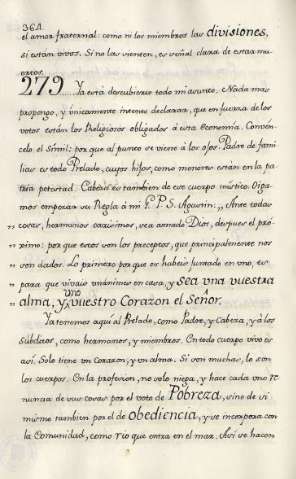 364.
el amor fraternal: como ni los miembros las divisiones,
si están vivos. Si no las sienten, es señal clara de estar mu-
ertos.
279 Ya está descubierto todo mi asunto. Nada mas
propongo, y únicamente intento declarar, que en fuerza de los
votos están los Religiosos obligados á esta Economía. Convén-
celo el símil: por que al punto se viene á los ojos. Padre de fami-
lias es todo Prelado, cuyos hijos, como menores están en la pa-
tria potestad. Cabeza es tambien de ese cuerpo místico. Oiga-
mos empezar su Regla á mi G. P. S. Agustin: „ Ante todas
„ cosas, hermanos carísimos, sea amado Dios, despues el pró-
„ ximo: por que estos son los preceptos, que principalmente nos
„ son dados. Lo primero por que os habeis juntado en uno, es
„ para que vivais unánimes en casa, y sea una vuestra
alma, y uno vuestro Corazon el Señor.
Ya tenemos aquí al Prelado, como Padre, y Cabeza, y á los
súbditos, como hermanos, y miembros. En todo cuerpo vivo es
así. Solo tiene un corazon, y un alma. Si son muchas, lo son
los cuerpos. En la profesion, no solo niega, y hace cada uno re-
nuncia de sus cosas por el voto de Pobreza, sino de sí
mismo tambien por el de obediencia, y se incorpora con
la Comunidad, como rio que entra en el mar. Así se hacen